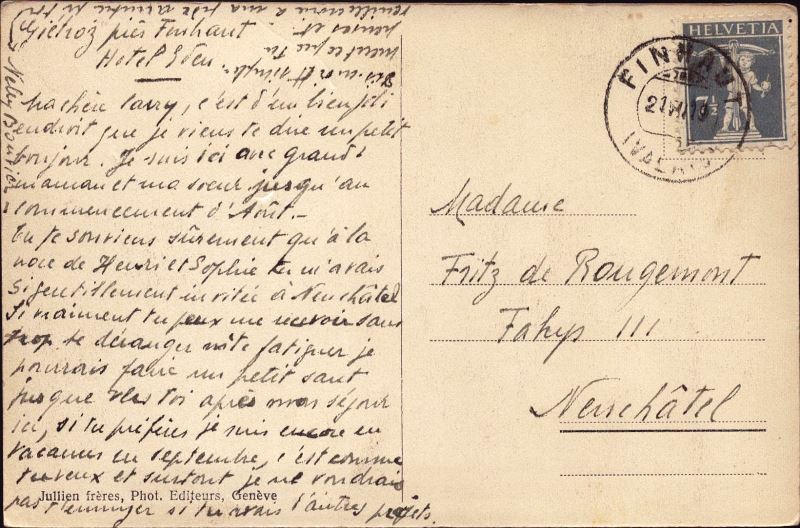 Giétroz près Finhaut
Hotel Eden
Ma chère Carry, c'est d'un bien joli
endroit que je viens te dire un petit
bonjour. Je suis ici avec grand'
maman et ma soeur jusqu'au
commencement d'Août.-
Tu te souviens sûrement qu'à la
noce de Henri et Sophie tu m'avais
si gentillement invitée à Neuchâtel
Si vraiment tu peux me recevoir sans
trop te déranger ni te fatiguer je
pourrais faire un petit saut
jusque vers toi après mon séjour
ici, si tu préfères je suis encore en
vacances en septembre, c'est comme
tu veux et surtout je ne voudrais
pas t'ennuyer si tu avais d'autres projets.
Nelly Bouvier
Jullien frères, Phot. Editeurs, Genève
HELVETIA
7½
FINHAUT
21 VII 19
(VALAIS)
Madame
Fritz de Rougemont
Fahys 111
Neuchâtel